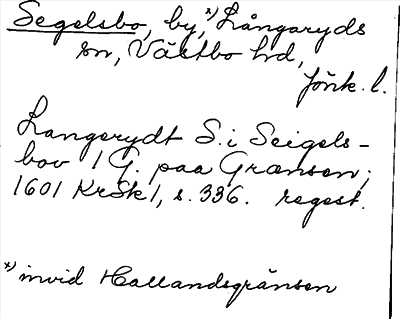 Segelsbo, by, x) Långaryds
sn, Västbo hd,
Jönk. l.
Langerydt S. i Seigels-
bov 1 G. paa Grænsen;
1601 KrSk 1, s. 336. regest.
x) invid Hallandsgränsen